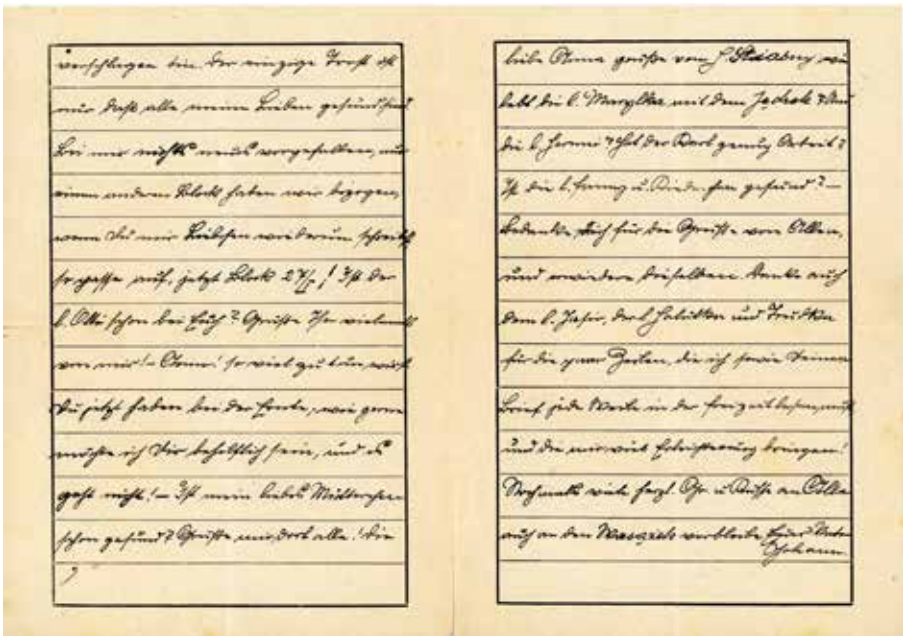 verschlagen bin. Der einzige Trost ist
nur daß alle meine Lieben gesund sind
Bei mir nichts neues vorgefallen, nur
einen anderen Block haben wir bezogen,
wenn Du mir Liebchen wiederum schreibst
so passe auf, jetzt Block 27/I! Ist der
l. Otti schon bei Euch? Grüße Ihn vielmals
von mir! – Anna! so viel zu tun wirst
Du jetzt haben bei der Ernte, wie gerne
möchte ich Dir behilflich sein, und es
geht nicht! – Ist mein liebes Mütterchen
schon gesund? Grüße mir dort alle! die
liebe Anna grüße vom H. wie
lebt die l. Marylka mit dem Jędrek? Und
die l. Hermi? Hat der Karl genug Arbeit?
Ist die l. Fanny u. gesund? –
Bedanke Euch für die Grüße von Allen,
und erwidere dieselben. Danke auch
dem l. der l. Halutka und Trudka
für die paar Zeilen, die ich sowie Deinen
Brief jede Woche in der Freizeit lesen muß
und die mir viel bringen!
Nochmals viele herzl. Gr. u. Küsse an Alle
auch an den verbleibe Euer Vater
Johann.